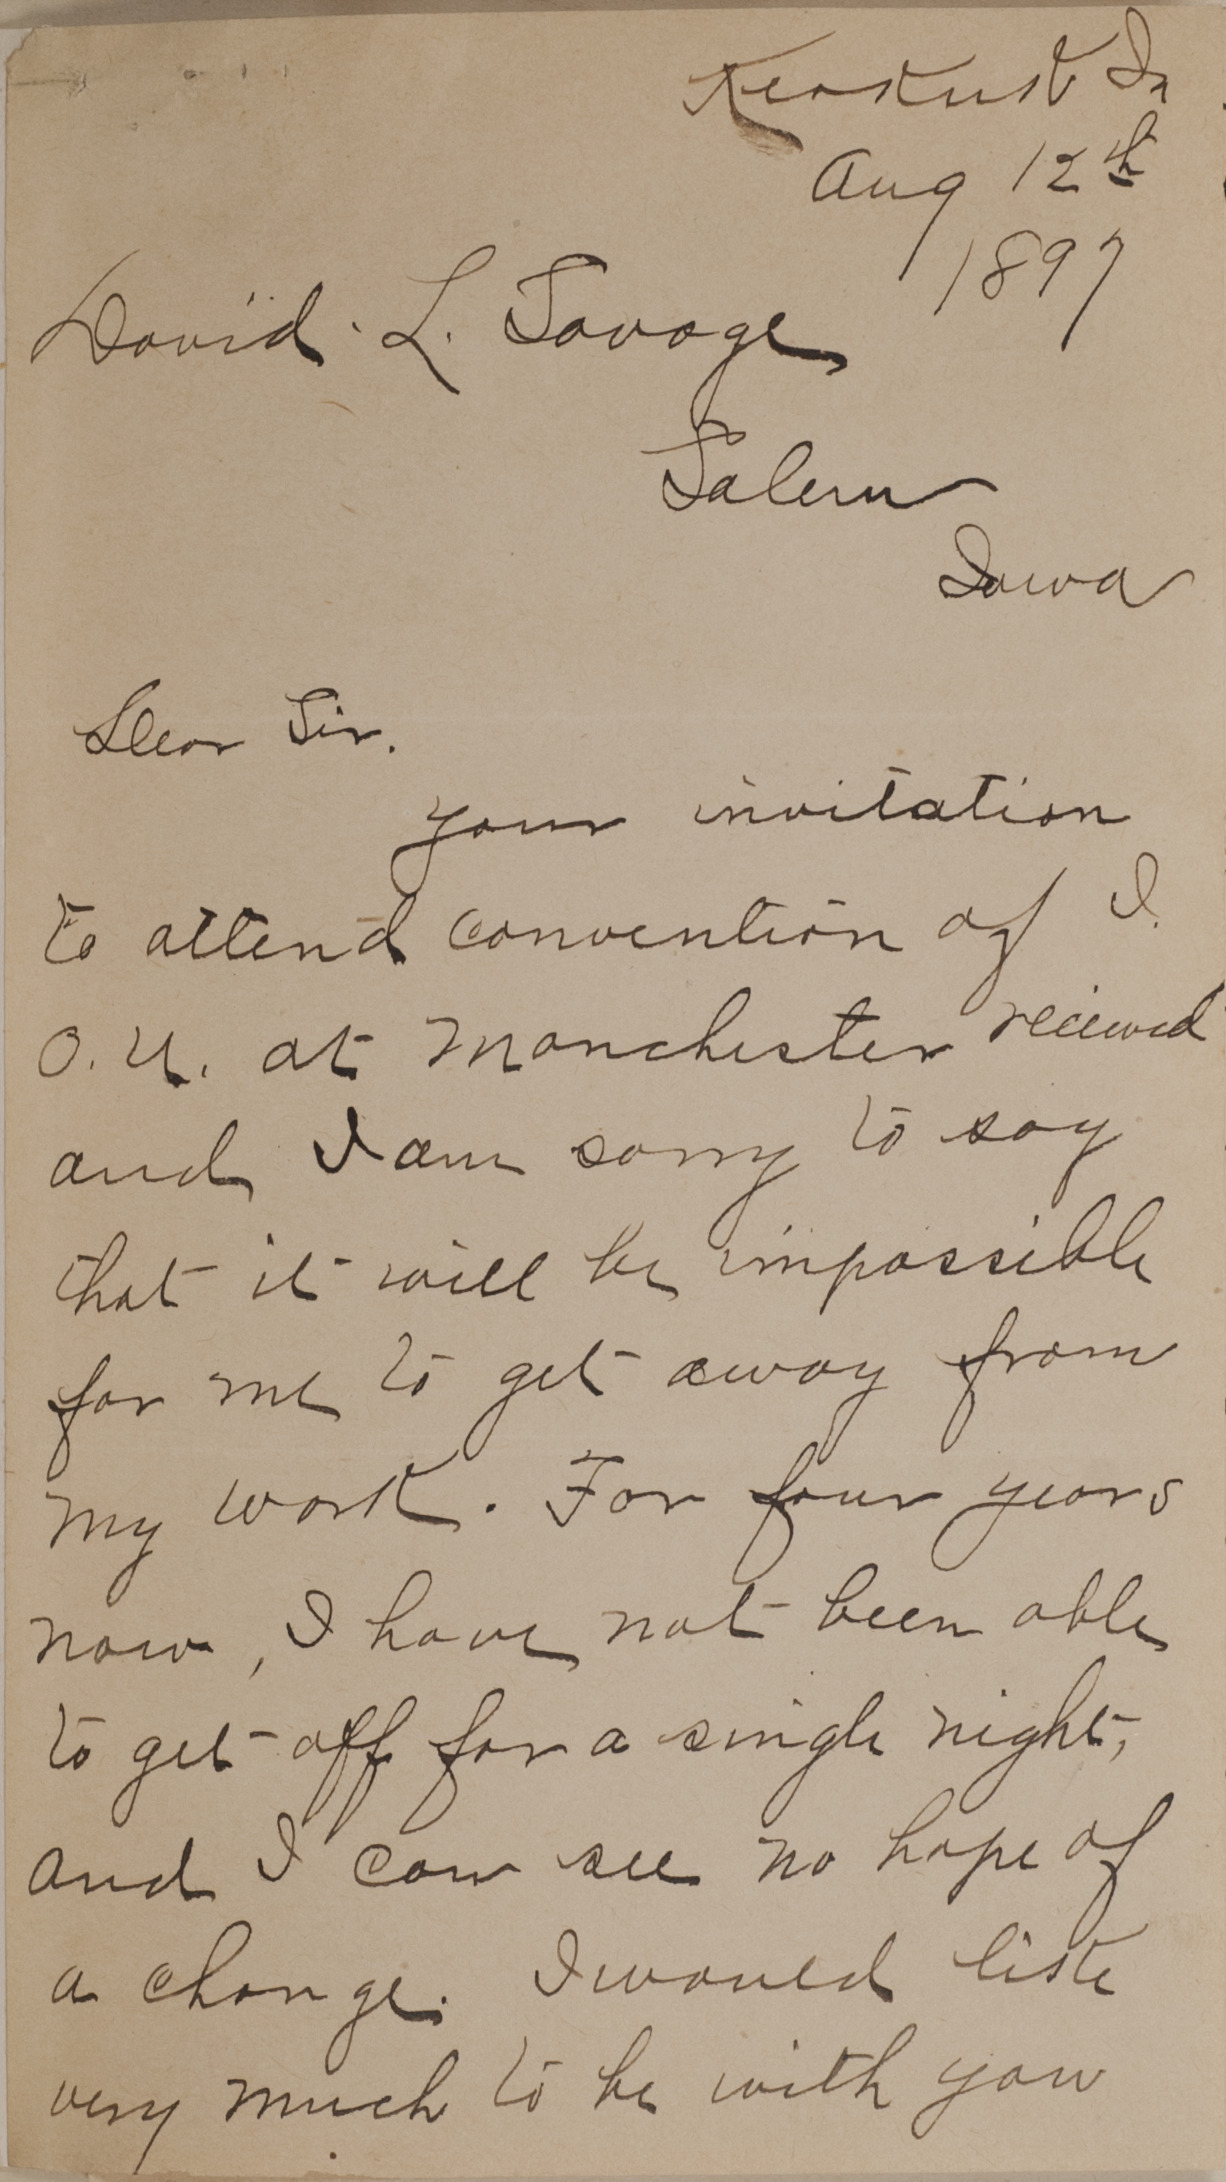 Keokuk Ia
Aug 12th
1897
David. L. Savage
Salem
Iowa
Dear Sir.
your invitation
to attend convention of I.
O. U. at Manchester recieved
and I am sorry to say
that it will be impossible
for me to get away from
my work. For four years
now, I have not been able
to get off for a single night,
and I can see no hope of
a change. I would like
very much to be with you